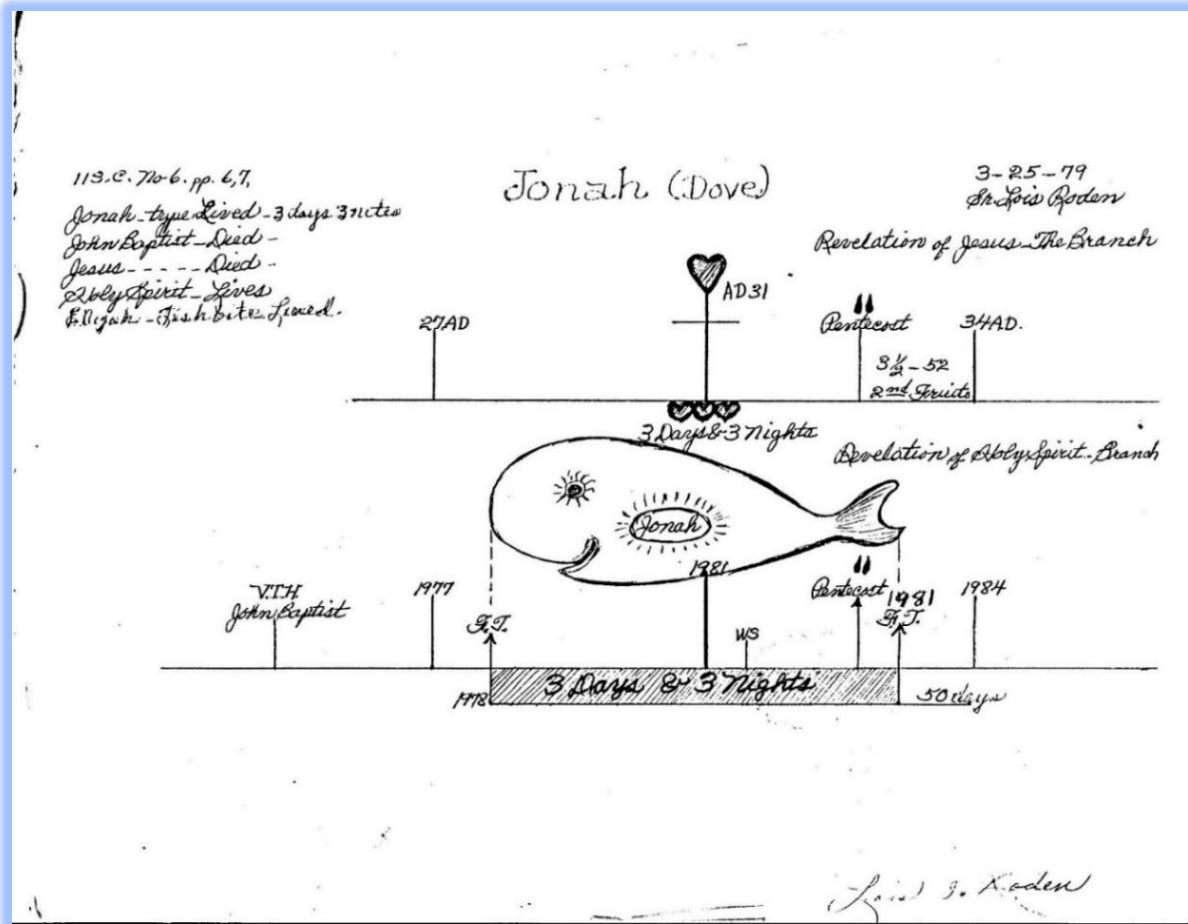 11 S.C. No 6. pp. 6,7,
Jonah - type Lived - 3 days 3 nites
John Baptist - Died -
Jesus - - - - - Died -
Holy Spirit - Lives
- Fish bite - Lived.
Jonah (Dove)
3-25-79
Sr. Lois Roden
Revelation of Jesus - The Branch
AD31
27AD
Pentecost
34A.D.
3½ - 52
2nd Fruits
3 Days & 3 Nights
Revelation of Holy Spirit - Branch
Jonah
V.T.H
John Baptist
1977
F.T.
1981
WS
Pentecost
1981
F.T.
1984
1978
3 Days & 3 Nights
50 days
Lois I. Roden